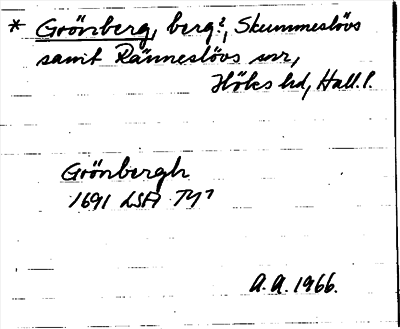 * Grönberg, berg?, Skummeslövs
samt Ränneslövs snr,
Höks hd, Hall. l.
Grönbergh
1691 LSA
A.A. 1966.